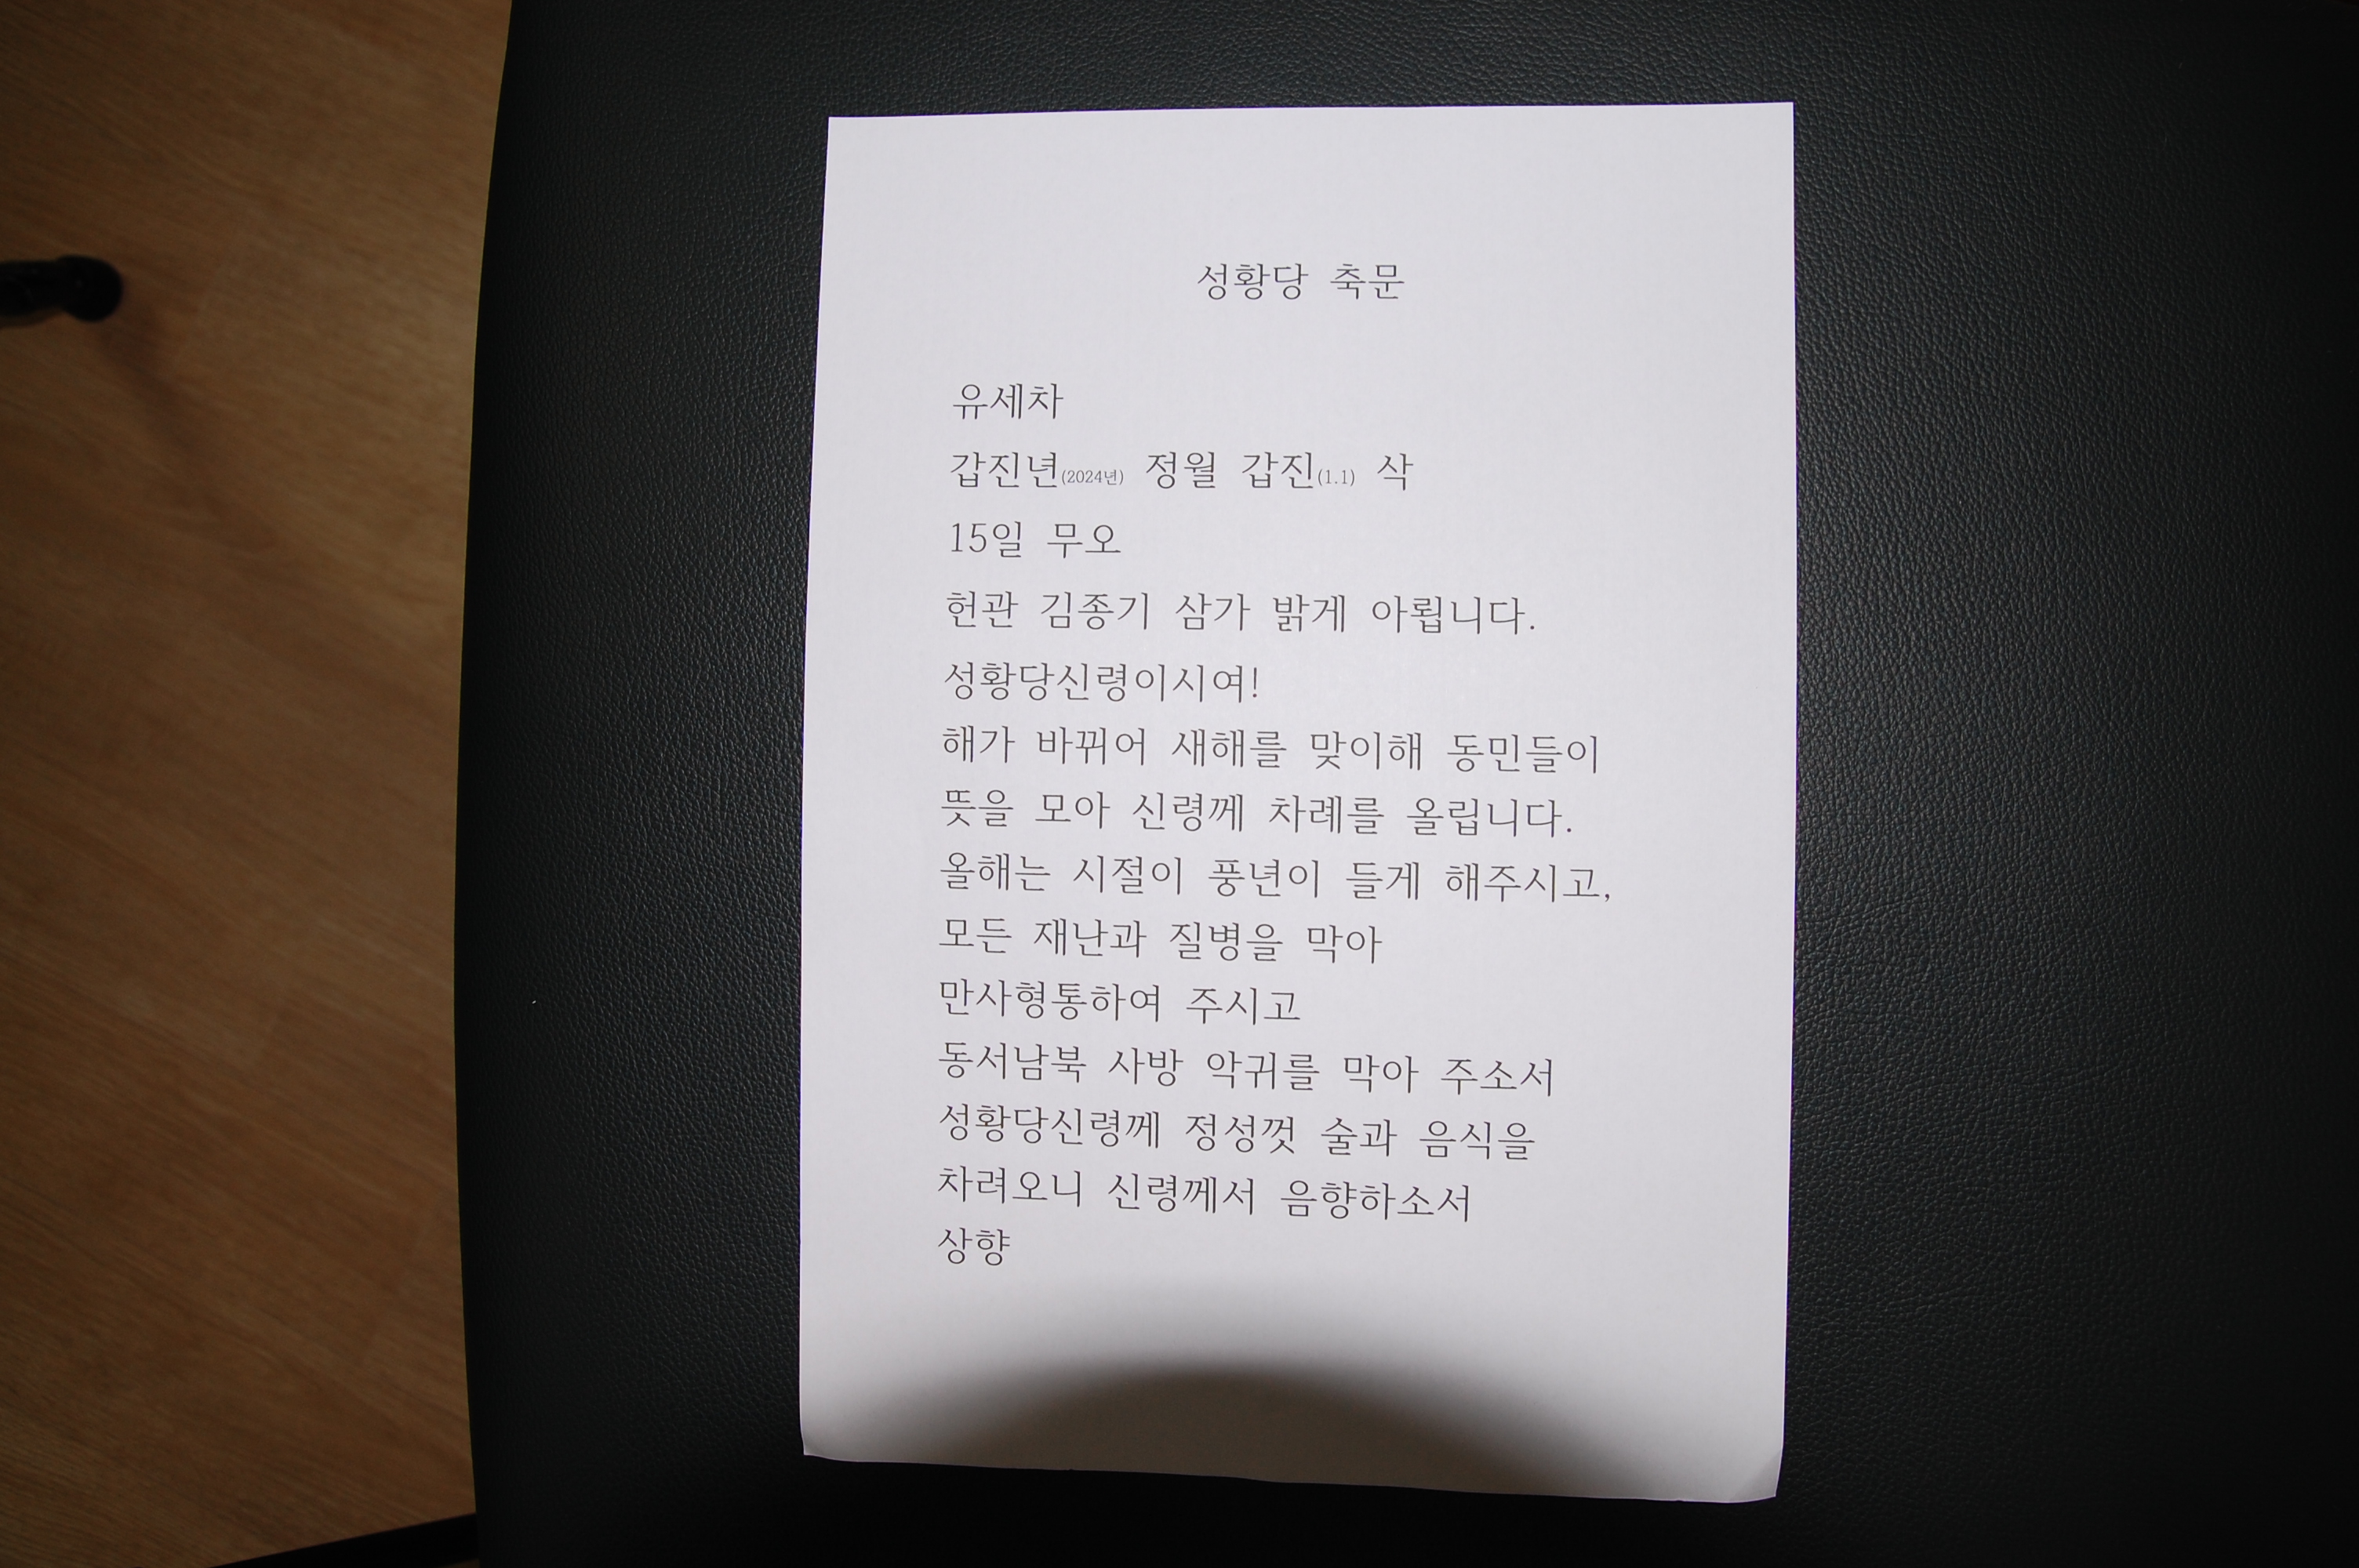 성황당 축문
유세차
갑진년(2024년) 정월 갑진(1.1) 삭
15일 무오
헌관 김종기 삼가 밝게 아룁니다.
성황당신령이시여!
해가 바뀌어 새해를 맞이해 동민들이
뜻을 모아 신령께 차례를 올립니다.
올해는 시절이 풍년이 들게 해주시고,
모든 재난과 질병을 막아
만사형통하여 주시고
동서남북 사방 악귀를 막아 주소서
성황당신령께 정성껏 술과 음식을
차려오니 신령께서 음향하소서
상향